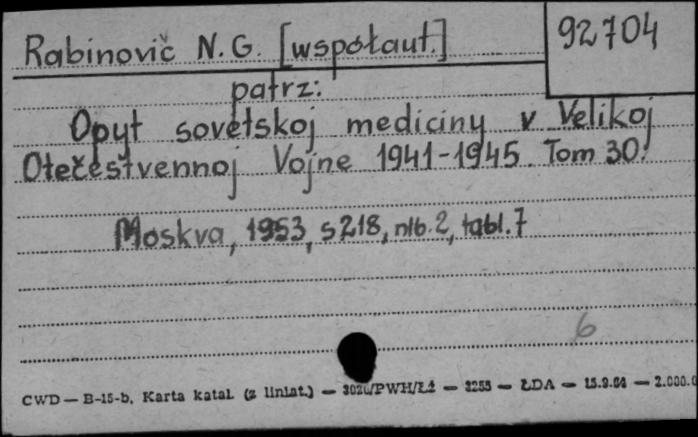 Rabinovič N.G. [współaut.]
92704
patrz:
Opyt sovetskoj mediciny v Velikoj
Otečestvennoj Vojne 1941-1945. Tom 30.
Moskva, 1953, s 218, nlb. 2, tabl. 7
6
CWD — B-15-b. Karta katal. (z liniat.) — PWH/Łź — 3255 — ŁDA — 15.9.64 — 2.000.0